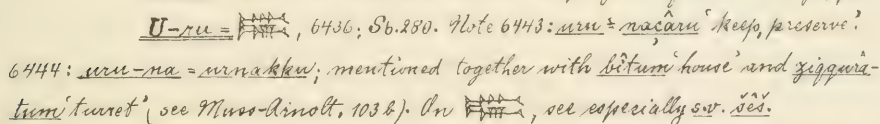 U-ru = , 6436; Sb. 280. Note 6443: uru = naçâru 'keep, preserve'.
6444: uru-na = urnakku; mentioned together with bîtum 'house' and ziqqurâ-
tum 'turret' (see Muss-Arnolt, 103 b). On , see especially s.v. šeš.